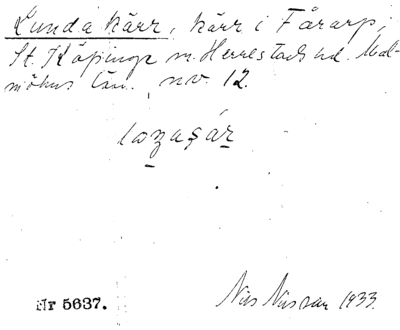 Lunda kärr, kärr i Fårarp,
St. Köpinge m. Herrestads hd. Mal-
möhus län. nv. 12.
Nr 5637.
Nils Nilsson 1933.